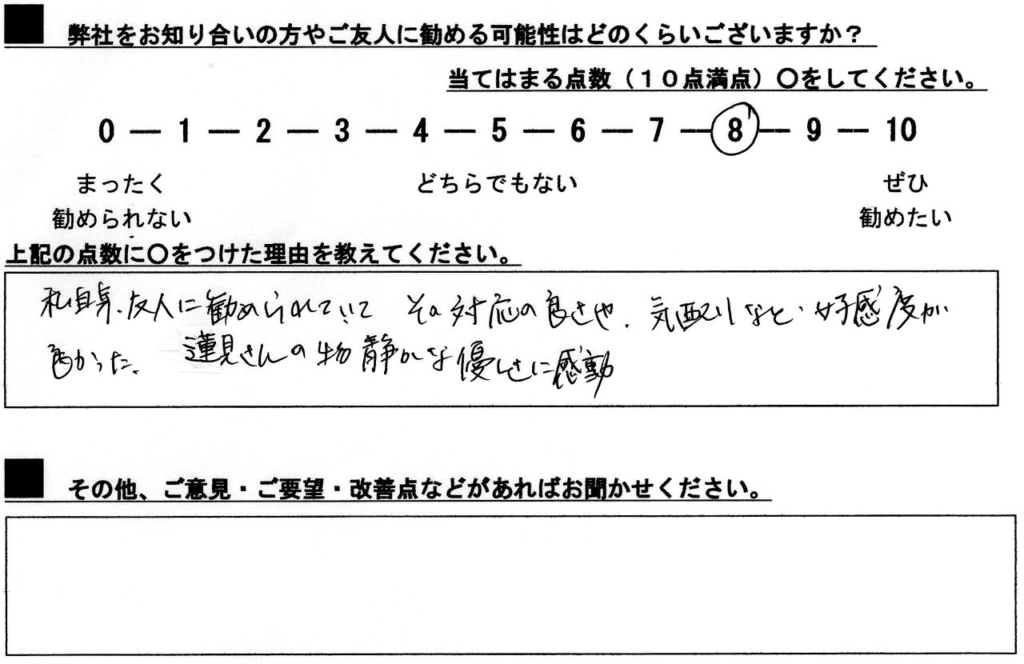 ■ 弊社をお知り合いの方やご友人に勧める可能性はどのくらいございますか?
当てはまる点数(10点満点)〇をしてください。
0 ― 1 ― 2 ― 3 ― 4 ― 5 ― 6 ― 7 ― 8 ― 9 ― 10
まったく どちらでもない ぜひ
勧められない 勧めたい
上記の点数に〇をつけた理由を教えてください。
私自身、友人に勧められていて その対応の良さや、気配りなど、好感度が
良かった。 蓮見さんの物静かな優しさに感動
■ その他、ご意見・ご要望・改善点などがあればお聞かせください。